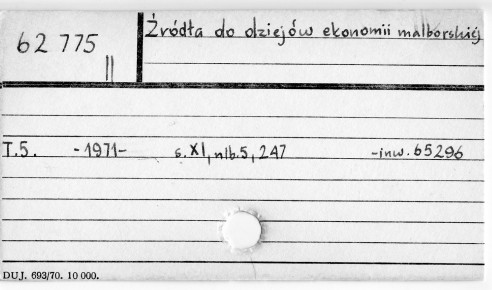 62 775
II
Źródła do dziejów ekonomii malborskiej
T.5. -1971- s. XI, nlb. 5, 247 -inw. 65296
DUJ. 693/70. 10 000.